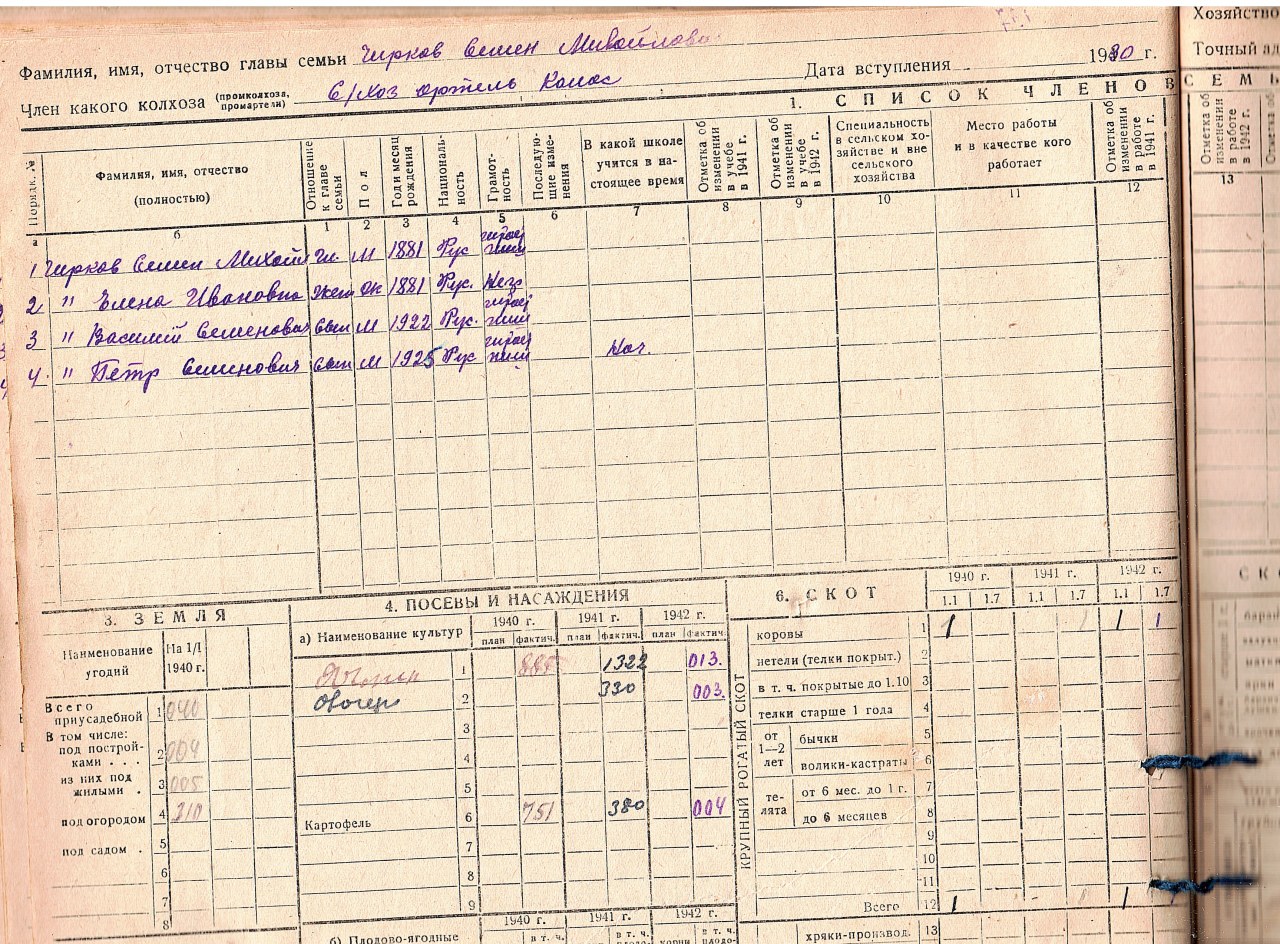 Фамилия, имя, отчество главы семьи Чирков Семен Михайлович
Дата вступления 1930 г.
Член какого колхоза (промколхоза, промартели) С/хоз артель Колос
1. СПИСОК ЧЛЕНОВ
Порядк. №
Фамилия, имя, отчество (полностью)
Отношение к главе семьи
Пол
Год и месяц рождения
Националь-ность
Грамот-ность
Последую-щие изме-нения
В какой школе учится в на-стоящее время
Отметка об изменении в учебе в 1941 г.
Отметка об изменении в учебе в 1942 г.
Специальность в сельском хо-зяйстве и вне сельского хозяйства
Место работы и в качестве кого работает
Отметка об изменении в работе в 1941 г.
а б 1 2 3 4 5 6 7 8 9 10 11 12
1 Чирков Семен Михайл Гл. М 1881 Рус
2 " Елена Ивановна Жен 1881 Рус. Негр
3 " Василий Семенович Сын М 1922 Рус.
4. " Петр Семенович Сын М 1925 Рус Нач.
3. ЗЕМЛЯ
Наименование угодий
На 1/I 1940 г.
Всего приусадебной 1 040
В том числе:
под построй-ками . . . 2 004
из них под жилыми . 3 005
под огородом 4
под садом . 5
6
7
8
4. ПОСЕВЫ И НАСАЖДЕНИЯ
а) Наименование культур
1940 г. 1941 г. 1942 г.
план фактич. план фактич. план фактич.
1 1322 013.
2 330 003.
3
4
5
Картофель 6 751 380 004
7
8
9
1940 г. 1941 г. 1942 г.
б) Плодово-ягодные
в т. ч. в т. ч. в т. ч.
6. СКОТ
1940 г. 1941 г. 1942 г.
1.1 1.7 1.1 1.7 1.1 1.7
КРУПНЫЙ РОГАТЫЙ СКОТ
коровы 1 1 1 1 1
нетели (телки покрыт.) 2
в т. ч. покрытые до 1.10 3
телки старше 1 года 4
от 1—2 лет
бычки 5
волики-кастраты 6
те-лята
от 6 мес. до 1 г. 7
до 6 месяцев 8
9
10
11
Всего 12 1 1
хряки-производ. 13
Хозяйство
Точный ад
СЕМЬ
Отметка об изменении в работе в 1942 г.
13
СКО